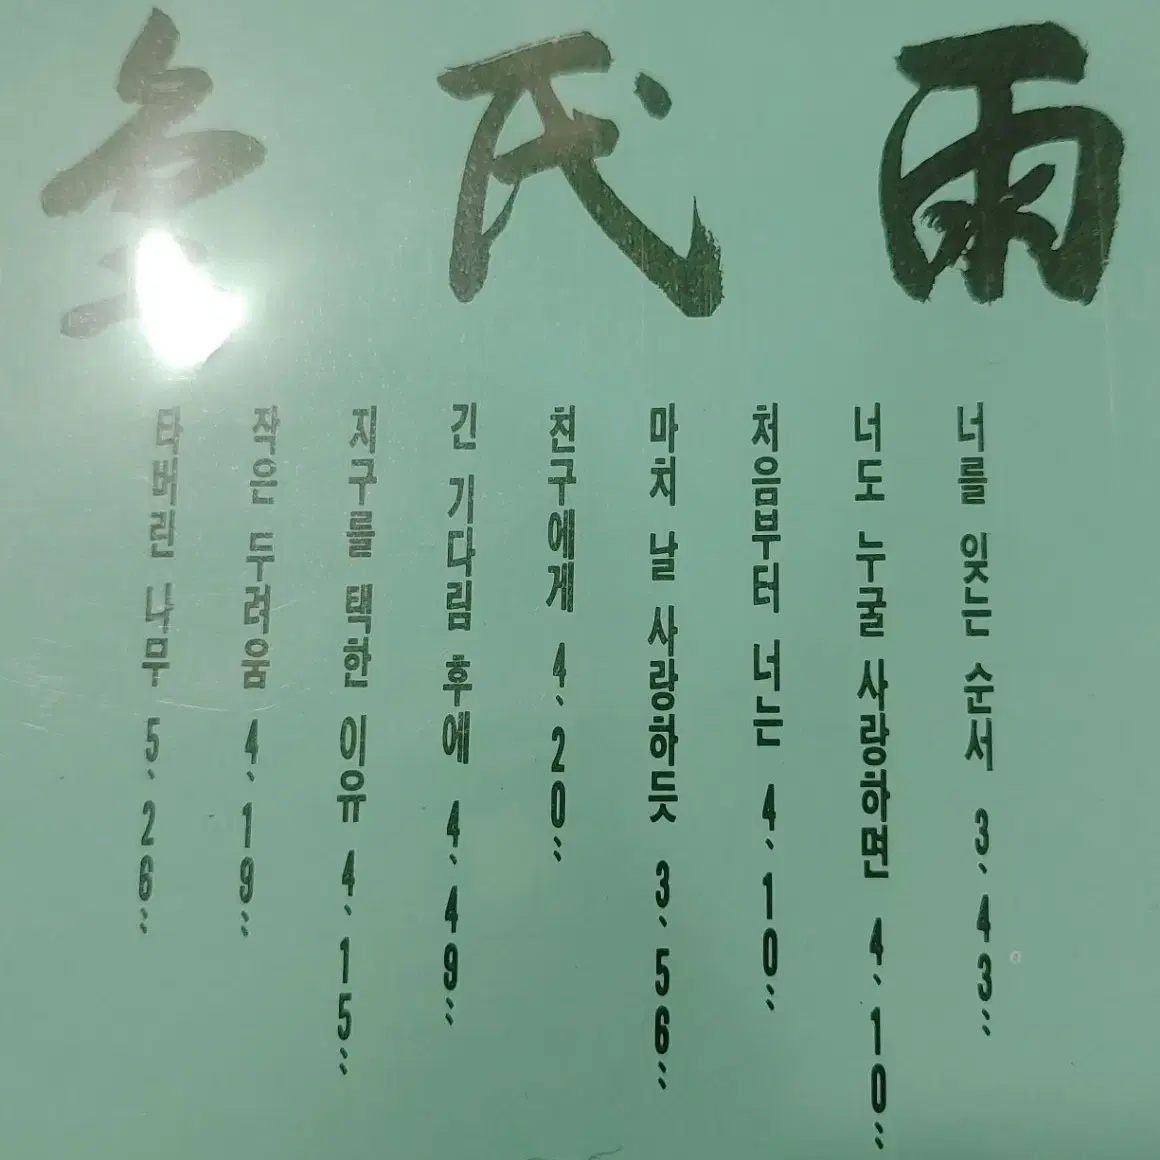 金民雨
너를 잊는 순서 3'43"
너도 누굴 사랑하면 4'10"
처음부터 너는 4'10"
마치 날 사랑하듯 3'56"
친구에게 4'20"
긴 기다림 후에 4'49"
지구를 택한 이유 4'15"
작은 두려움 4'19"
타버린 나무 5'26"